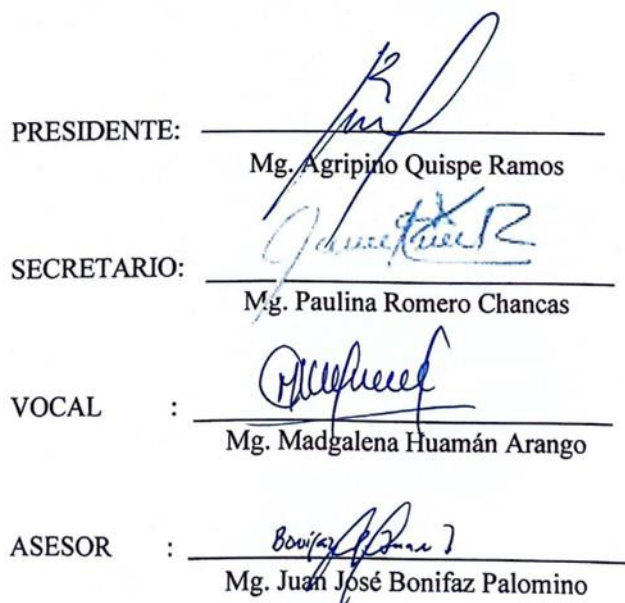 PRESIDENTE:
Mg. Agripino Quispe Ramos
SECRETARIO:
Mg. Paulina Romero Chancas
VOCAL :
Mg. Madgalena Huamán Arango
Bonifaz Juan J
ASESOR :
Mg. Juan José Bonifaz Palomino